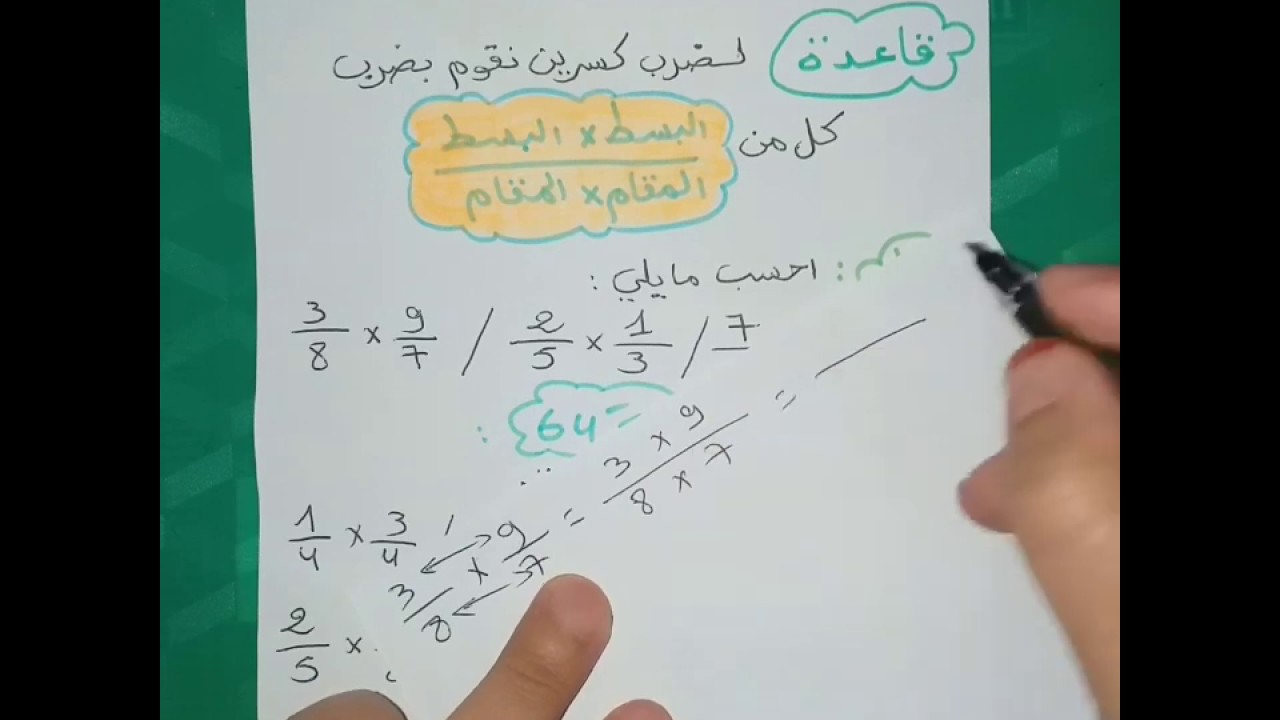 قاعدة لضرب كسرين نقوم بضرب
كل من البسط × البسط / المقام × المقام
: احسب مايلي :
3/8 × 9/7 / 2/5 × 1/3 / 7
64 =
:
1/4 × 3/4
3/8 × 9/7 = 3 × 9 / 8 × 7 =
2/5 ×